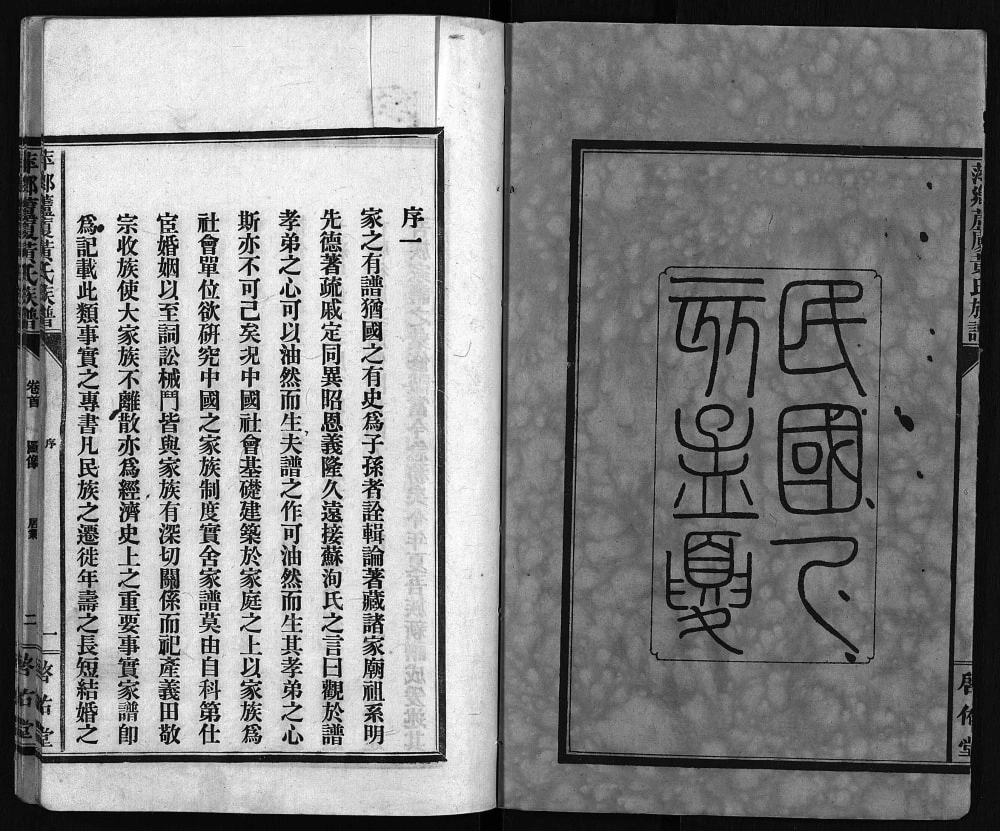 萍鄉蘆廈黃氏族譜
啓佑堂
民國八
示孟夏
序一
家之有譜猶國之有史爲子孫者詮輯論著藏諸家廟祖系明
先德著疏戚定同異昭恩義隆久遠接蘇洵氏之言曰觀於譜
孝弟之心可以油然而生夫譜之作可油然而生其孝弟之心
斯亦不可已矣况中國社會基礎建築於家庭之上以家族爲
社會單位欲研究中國之家族制度實舍家譜莫由自科第仕
宦婚姻以至詞訟械鬥皆與家族有深切關係而祀產義田敬
宗收族使大家族不離散亦爲經濟史上之重要事實家譜卽
爲記載此類事實之專書凡民族之遷徙年壽之長短結婚之
萍鄉蘆廈黃氏族譜
序
一
啓佑堂
萍鄉蘆廈黃氏族譜
卷首
圖像
二
啓佑堂